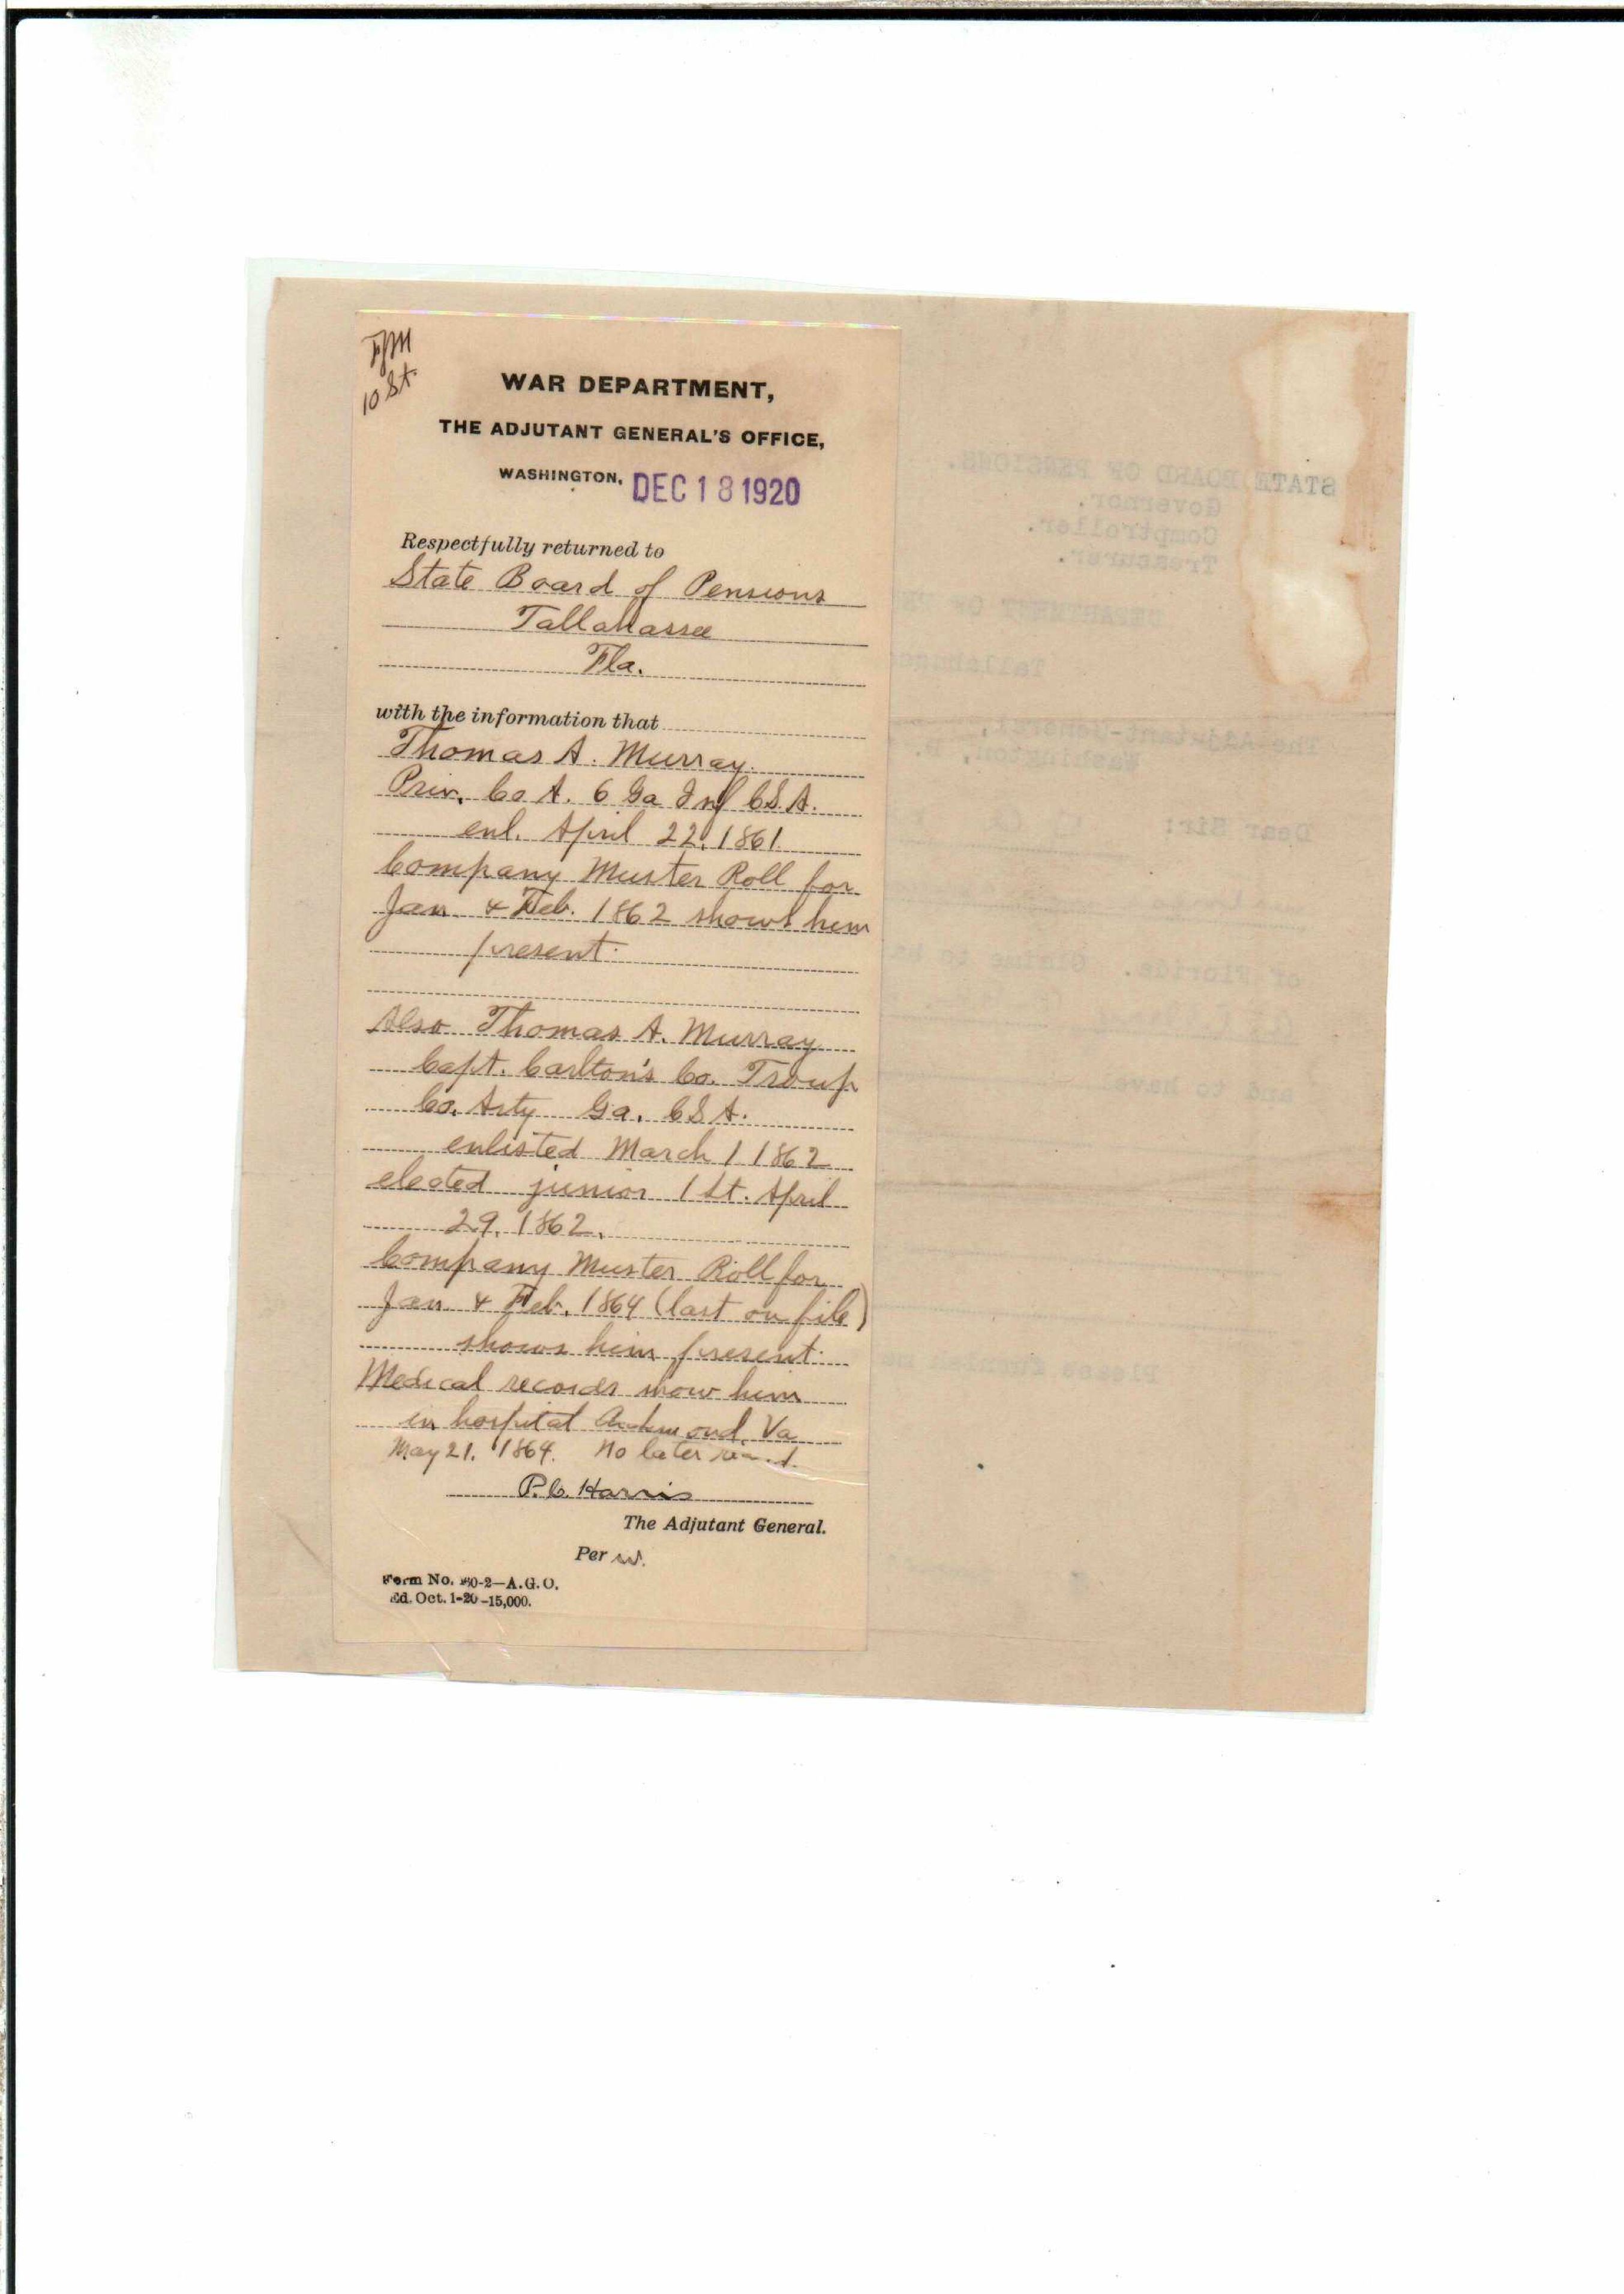 FJM
10 St.
WAR DEPARTMENT,
THE ADJUTANT GENERAL'S OFFICE,
WASHINGTON, DEC 18 1920
Respectfully returned to
State Board of Pensions
Tallahassee
Fla.
with the information that
Thomas A. Murray.
Priv. Co A. 6 Ga Inf C.S.A.
enl. April 22, 1861.
Company Muster Roll for
Jan. & Feb. 1862 shows him
present.
Also Thomas A. Murray
Capt. Carlton's Co. Troup
Co. Arty Ga. C S A.
enlisted March 1 1862
elected junior 1 Lt. April
29, 1862.
Company Muster Roll for
Jan. & Feb. 1864 (last on file)
shows him present.
Medical records show him
in hospital Richmond, Va
May 21, 1864. No later record.
P.C. Harris
The Adjutant General.
Per W.
Form No. 160-2—A.G.O.
Ed. Oct. 1-20-15,000.
STATE BOARD OF PENSIONS.
Governor.
Comptroller.
Treasurer.
DEPARTMENT OF
The Adjutant-General,
Washington, D.
Dear Sir:
of Florida. Claims to
and to have
Please furnish